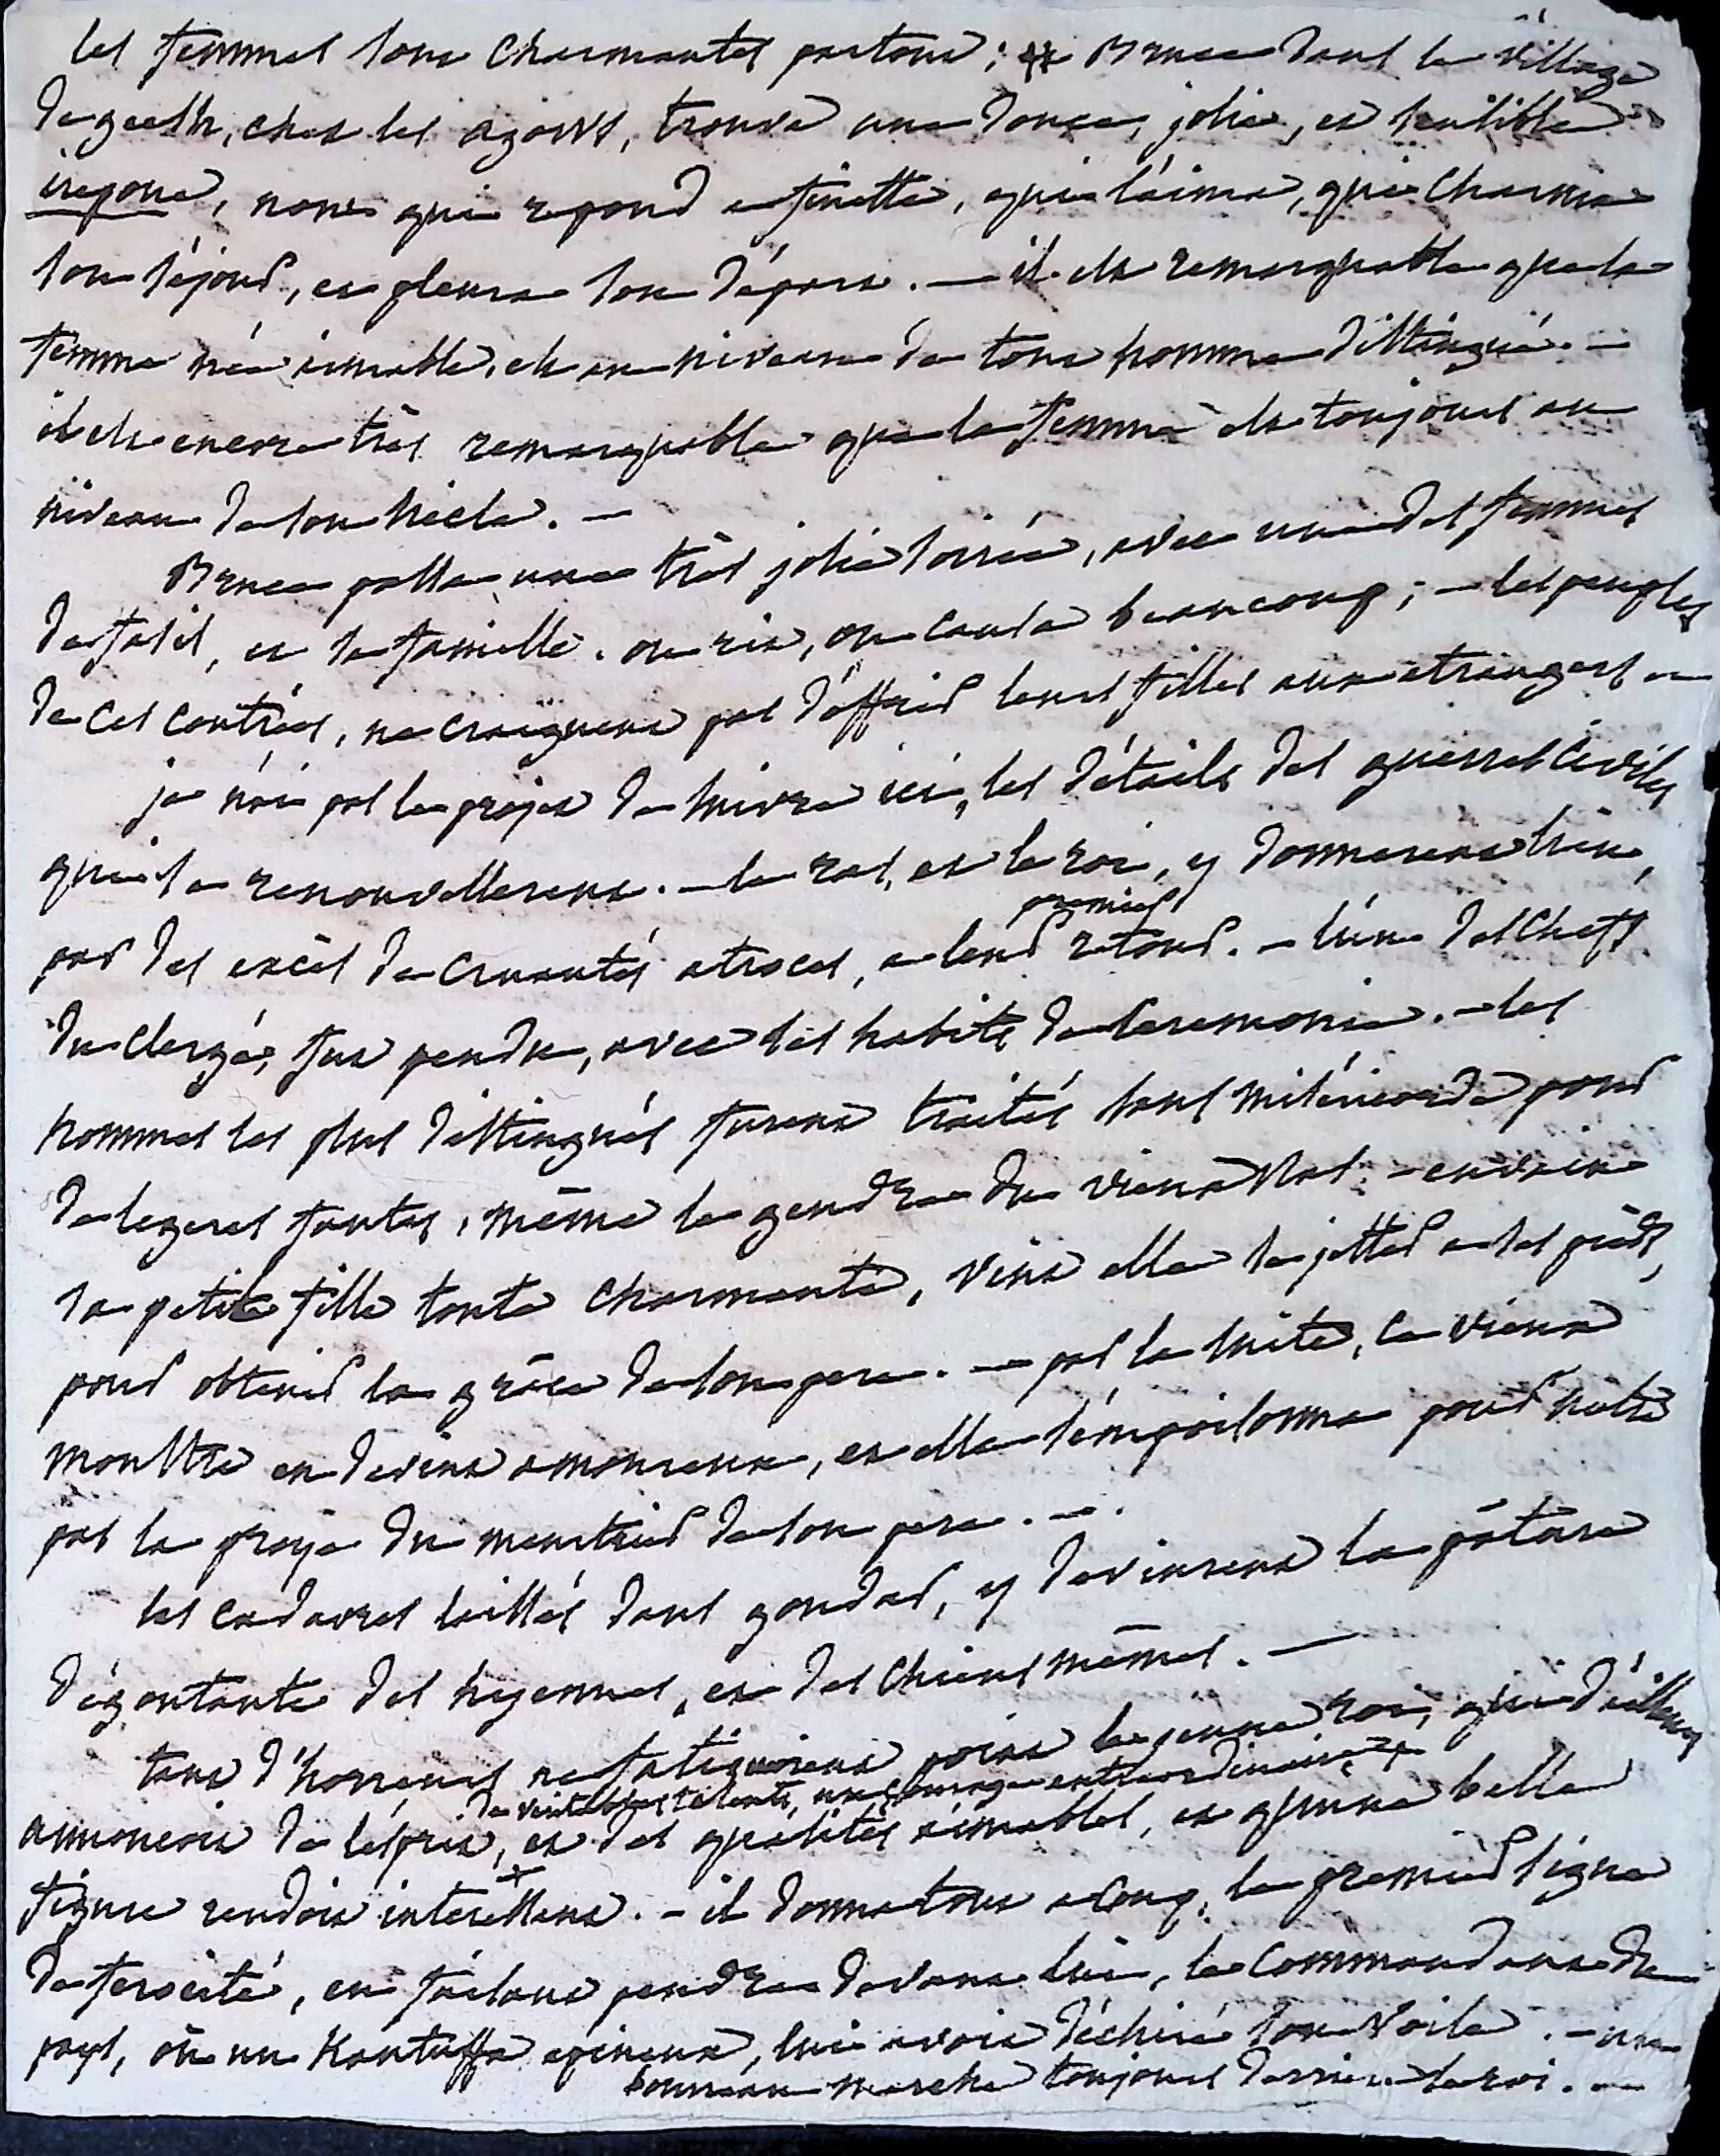 les femmes sont charmantes partout ; Bruce dans le village
de geesh, chez les agows, trouve une douce, jolie, et sensible
irepone, nom qui repond a finette, qui l'aima, qui charma
son séjour, et pleura son départ. — il est remarquable que la
femme née aimable, est au niveau de tout homme distingué. —
il est encore très remarquable que la femme est toujours au
niveau de son siècle. —
Bruce passa une très jolie soirée, avec une des femmes
de fasil, et sa famille. on rit, on causa beaucoup ; — les peuples
de ces contrées, ne craignent pas d'offrir leurs filles aux étrangers —
je n'ai pas le projet de suivre ici, les détails des guerres civiles
qui se renouvellerent. — le ras, et le roi, y donnerent lieu,
par des excès de cruautés atroces, a leur premier retour. — l'un des chefs
du clergé, fut pendu, avec ses habits de ceremonie. — les
hommes les plus distingués furent traités sans miséricorde pour
de legeres fautes, même le gendre du vieux Ras. — en vain
sa petite fille toute charmante, vint elle se jetter a ses pieds,
pour obtenir la grâce de son pere. — par la suite, ce vieux
monstre en devint amoureux, et elle s'empoisonna pour n'être
pas la proye du meurtrier de son pere. —.
les cadavres laissés dans gondar, y devinrent la pâture
dégoutante des hyennes, et des chiens mêmes. —
tant d'horreurs ne fatiguoient point le jeune roi, qui d'ailleurs
de veritables talents, un courage extraordinaire
annoncoit de l'esprit, et des qualités aimables, et qu'une belle
figure rendoit interessant. — il donna tout a coup, le premier signe
de ferocité, en faisant pendre devant lui, le commandant du
pays, où un Kantuffa epineux, lui avoit déchiré son voile. — un
bourreau marche toujours derriere le roi. —